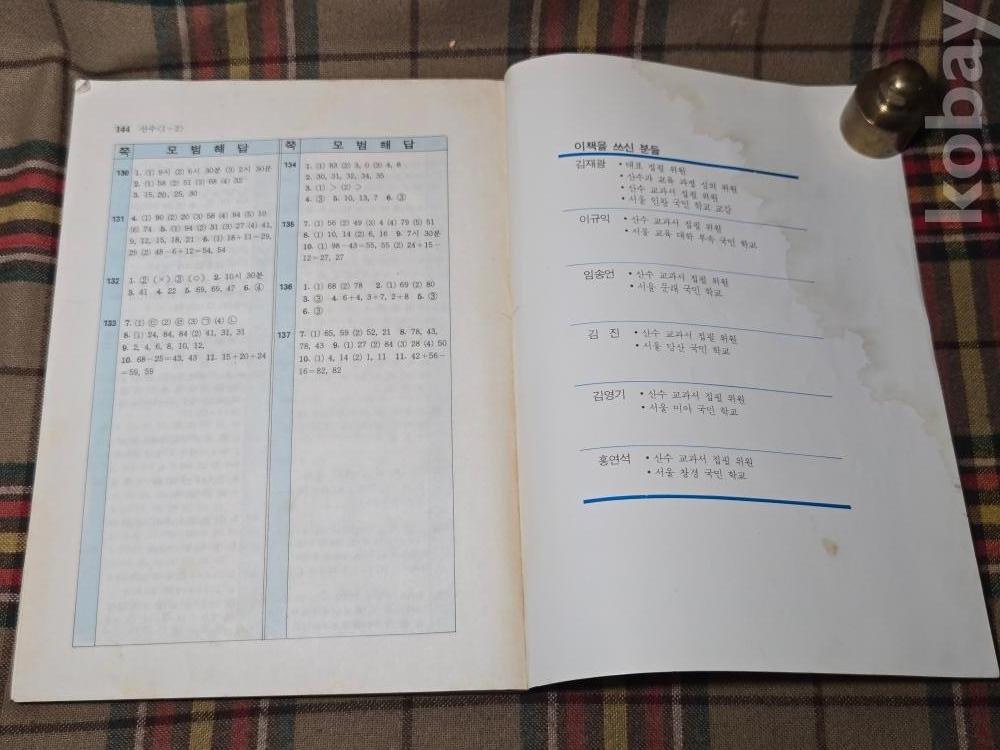 144 산수(1-2)
쪽 모 범 해 답
130 1. (1) 9시 (2) 6시 30분 (3) 2시 30분
2. (1) 58 (2) 51 (3) 68 (4) 32
3. 15, 20, 25, 30
131 4. (1) 90 (2) 20 (3) 58 (4) 94 (5) 10
(6) 74 5. (1) 94 (2) 31 (3) 27 (4) 41,
9, 12, 15, 18, 21 6. (1) 18+11=29,
29 (2) 48-6+12=54, 54
132 1. ② (×) ③ (○) 2. 10시 30분
3. 41 4. 22 5. 69, 69, 47 6. ④
133 7. (1) ㉢ (2) ㉣ (3) ㉠ (4) ㉡
8. (1) 24, 84, 84 (2) 41, 31, 31
9. 2, 4, 6, 8, 10, 12,
10. 68-25=43, 43 11. 15+20+24
=59, 59
쪽 모 범 해 답
134 1. (1) 83 (2) 3, 0 (3) 4, 8
2. 30, 31, 32, 34, 35
3. (1) > (2) >
4. ③ 5. 10, 13, 7 6. ③
135 7. (1) 56 (2) 49 (3) 4 (4) 79 (5) 51
8. (1) 10, 14 (2) 6, 16 9. 7시 30분
10. (1) 98-43=55, 55 (2) 24+15-
12=27, 27
136 1. (1) 68 (2) 78 2. (1) 69 (2) 80
3. ③ 4. 6+4, 3+7, 2+8 5. ③
6. ③
137 7. (1) 65, 59 (2) 52, 21 8. 78, 43,
78, 43 9. (1) 27 (2) 84 (3) 28 (4) 50
10. (1) 4, 14 (2) 1, 11 11. 42+56-
16=82, 82
이책을 쓰신 분들
김재광 • 대표 집필 위원
• 산수과 교육 과정 심의 위원
• 산수 교과서 집필 위원
• 서울 인왕 국민 학교 교감
이규익 • 산수 교과서 집필 위원
• 서울 교육 대학 부속 국민 학교
임송언 • 산수 교과서 집필 위원
• 서울 문래 국민 학교
김 진 • 산수 교과서 집필 위원
• 서울 당산 국민 학교
김영기 • 산수 교과서 집필 위원
• 서울 미아 국민 학교
홍연석 • 산수 교과서 집필 위원
• 서울 창경 국민 학교
kobay